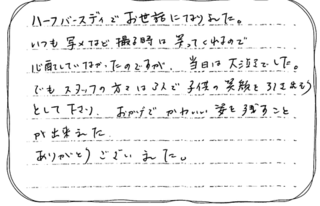 ハーフバースディでお世話になりました。
いつも写メなど撮る時は笑ってくれるので
心配していなかったのですが、当日は大泣きでした。
でもスタッフの方々は3人で子供の笑顔を引き出そう
として下さり、おかげでかわいい姿を残すこと
が出来ました
ありがとうございました。